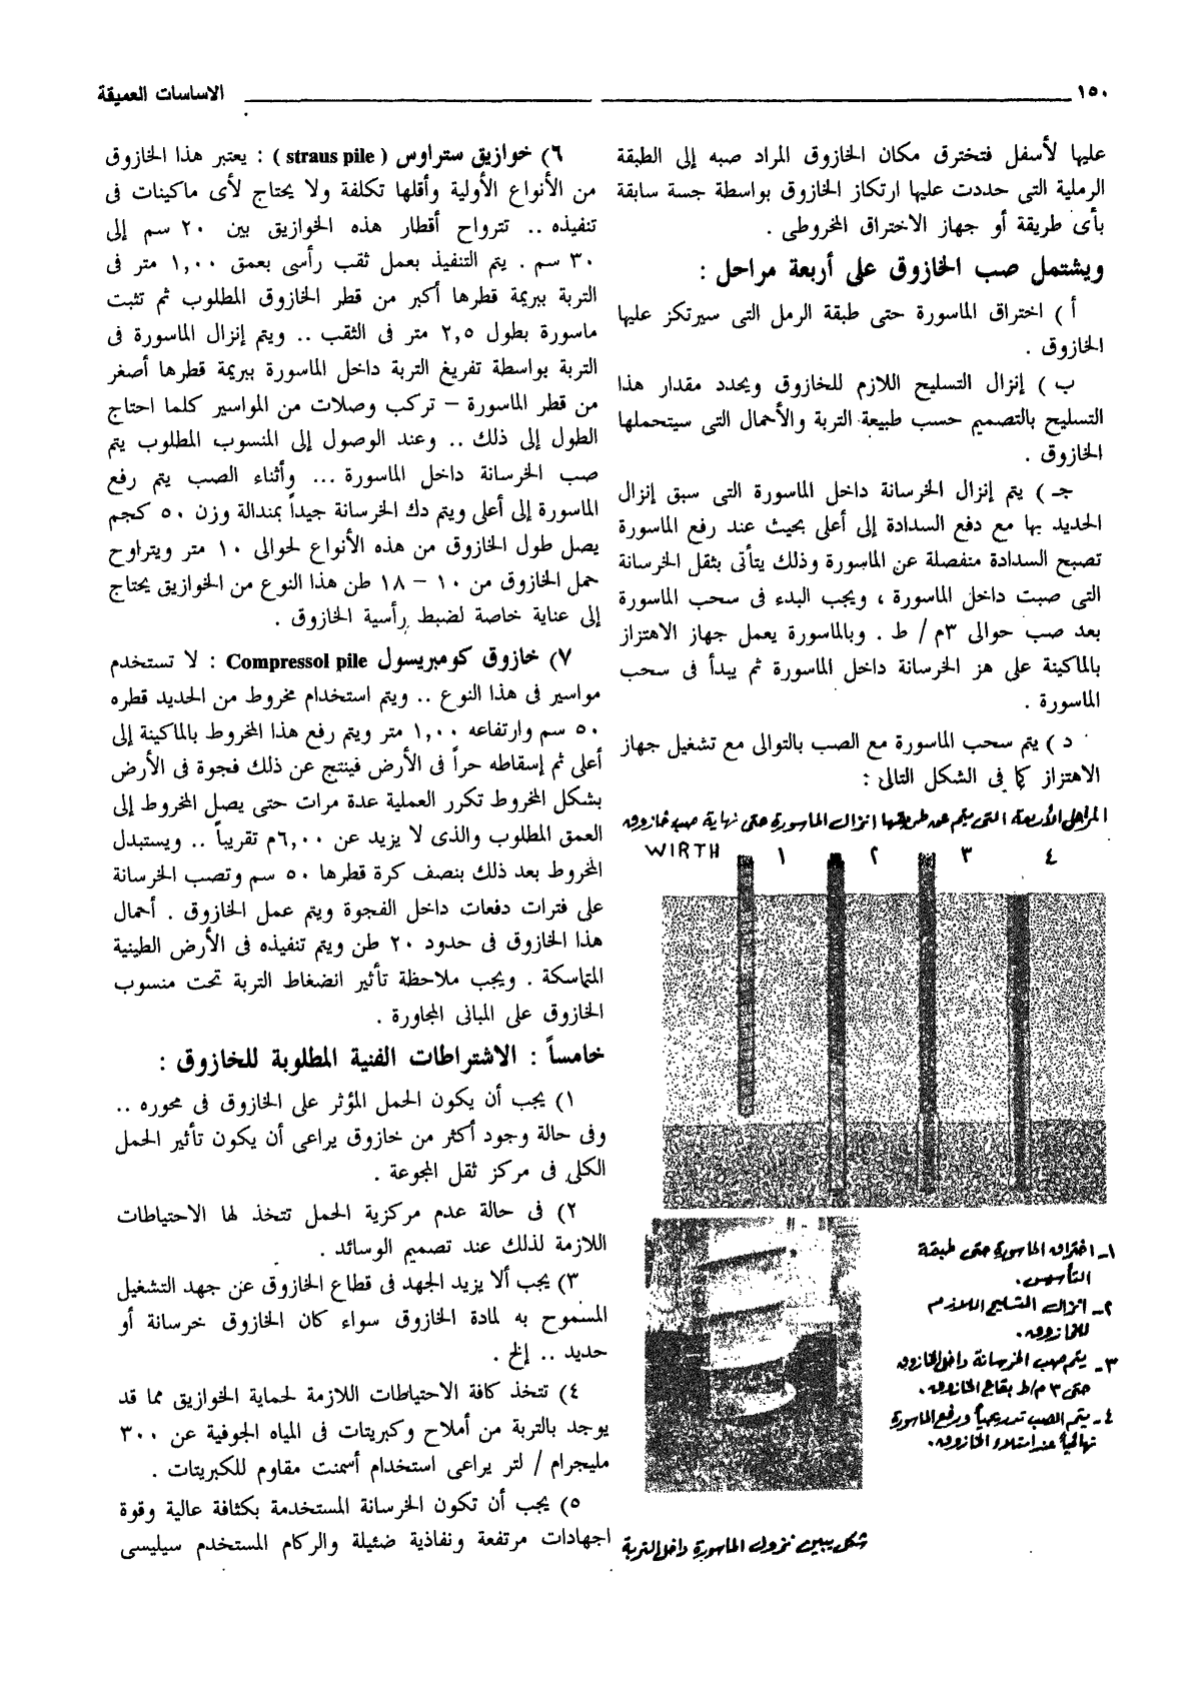 ١٥٠
الاساسات العميقة
عليها لأسفل فتخترق مكان الخازوق المراد صبه إلى الطبقة
الرملية التى حددت عليها ارتكاز الخازوق بواسطة جسة سابقة
بأى طريقة أو جهاز الاختراق المخروطى .
ويشتمل صب الخازوق على أربعة مراحل :
أ ) اختراق الماسورة حتى طبقة الرمل التى سيرتكز عليها
الخازوق .
ب ) إنزال التسليح اللازم للخازوق ويحدد مقدار هذا
التسليح بالتصميم حسب طبيعة التربة والأحمال التى سيتحملها
الخازوق .
جـ ) يتم إنزال الخرسانة داخل الماسورة التى سبق إنزال
الحديد بها مع دفع السدادة إلى أعلى بحيث عند رفع الماسورة
تصبح السدادة منفصلة عن الماسورة وذلك يتأتى بثقل الخرسانة
التى صبت داخل الماسورة ، ويجب البدء فى سحب الماسورة
بعد صب حوالى ٣م / ط . وبالماسورة يعمل جهاز الاهتزاز
بالماكينة على هز الخرسانة داخل الماسورة ثم يبدأ فى سحب
الماسورة .
د ) يتم سحب الماسورة مع الصب بالتوالى مع تشغيل جهاز
الاهتزاز كما فى الشكل التالى :
المراحل الأربعة التى يتم عن طريقها انزال الماسورة حتى نهاية صب خازوق
WIRTH ١ ٢ ٣ ٤
١- اختراق الماسورة حتى طبقة
التأسيس.
٢- انزال التسليح اللازم
للخازوق.
٣- يتم صب الخرسانة داخل الخازوق
حتى ٣ م/ط بقاع الخازوق.
٤- يتم الصب تدريجياً ورفع الماسورة
نهائياً عند امتلاء الخازوق.
شكل يبين نزول الماسورة داخل التربة
٦) خوازيق ستراوس ( straus pile ) : يعتبر هذا الخازوق
من الأنواع الأولية وأقلها تكلفة ولا يحتاج لأى ماكينات فى
تنفيذه .. تترواح أقطار هذه الخوازيق بين ٢٠ سم إلى
٣٠ سم . يتم التنفيذ بعمل ثقب رأسى بعمق ١,٠٠ متر فى
التربة ببريمة قطرها أكبر من قطر الخازوق المطلوب ثم تثبت
ماسورة بطول ٢,٥ متر فى الثقب .. ويتم إنزال الماسورة فى
التربة بواسطة تفريغ التربة داخل الماسورة ببريمة قطرها أصغر
من قطر الماسورة – تركب وصلات من المواسير كلما احتاج
الطول إلى ذلك .. وعند الوصول إلى المنسوب المطلوب يتم
صب الخرسانة داخل الماسورة ... وأثناء الصب يتم رفع
الماسورة إلى أعلى ويتم دك الخرسانة جيداً بمندالة وزن ٥٠ كجم
يصل طول الخازوق من هذه الأنواع لحوالى ١٠ متر ويتراوح
حمل الخازوق من ١٠ – ١٨ طن هذا النوع من الخوازيق يحتاج
إلى عناية خاصة لضبط رأسية الخازوق .
٧) خازوق كومبريسول Compressol pile : لا تستخدم
مواسير فى هذا النوع .. ويتم استخدام مخروط من الحديد قطره
٥٠ سم وارتفاعه ١,٠٠ متر ويتم رفع هذا المخروط بالماكينة إلى
أعلى ثم إسقاطه حراً فى الأرض فينتج عن ذلك فجوة فى الأرض
بشكل المخروط تكرر العملية عدة مرات حتى يصل المخروط إلى
العمق المطلوب والذى لا يزيد عن ٦,٠٠م تقريباً .. ويستبدل
المخروط بعد ذلك بنصف كرة قطرها ٥٠ سم وتصب الخرسانة
على فترات دفعات داخل الفجوة ويتم عمل الخازوق . أحمال
هذا الخازوق فى حدود ٢٠ طن ويتم تنفيذه فى الأرض الطينية
المتماسكة . ويجب ملاحظة تأثير انضغاط التربة تحت منسوب
الخازوق على المبانى المجاورة .
خامساً : الاشتراطات الفنية المطلوبة للخازوق :
١) يجب أن يكون الحمل المؤثر على الخازوق فى محوره ..
وفى حالة وجود أكثر من خازوق يراعى أن يكون تأثير الحمل
الكلى فى مركز ثقل المجوعة .
٢) فى حالة عدم مركزية الحمل تتخذ لها الاحتياطات
اللازمة لذلك عند تصميم الوسائد .
٣) يجب ألا يزيد الجهد فى قطاع الخازوق عن جهد التشغيل
المسموح به لمادة الخازوق سواء كان الخازوق خرسانة أو
حديد .. إلخ .
٤) تتخذ كافة الاحتياطات اللازمة لحماية الخوازيق مما قد
يوجد بالتربة من أملاح وكبريتات فى المياه الجوفية عن ٣٠٠
مليجرام / لتر يراعى استخدام أسمنت مقاوم للكبريتات .
٥) يجب أن تكون الخرسانة المستخدمة بكثافة عالية وقوة
اجهادات مرتفعة ونفاذية ضئيلة والركام المستخدم سيليسى